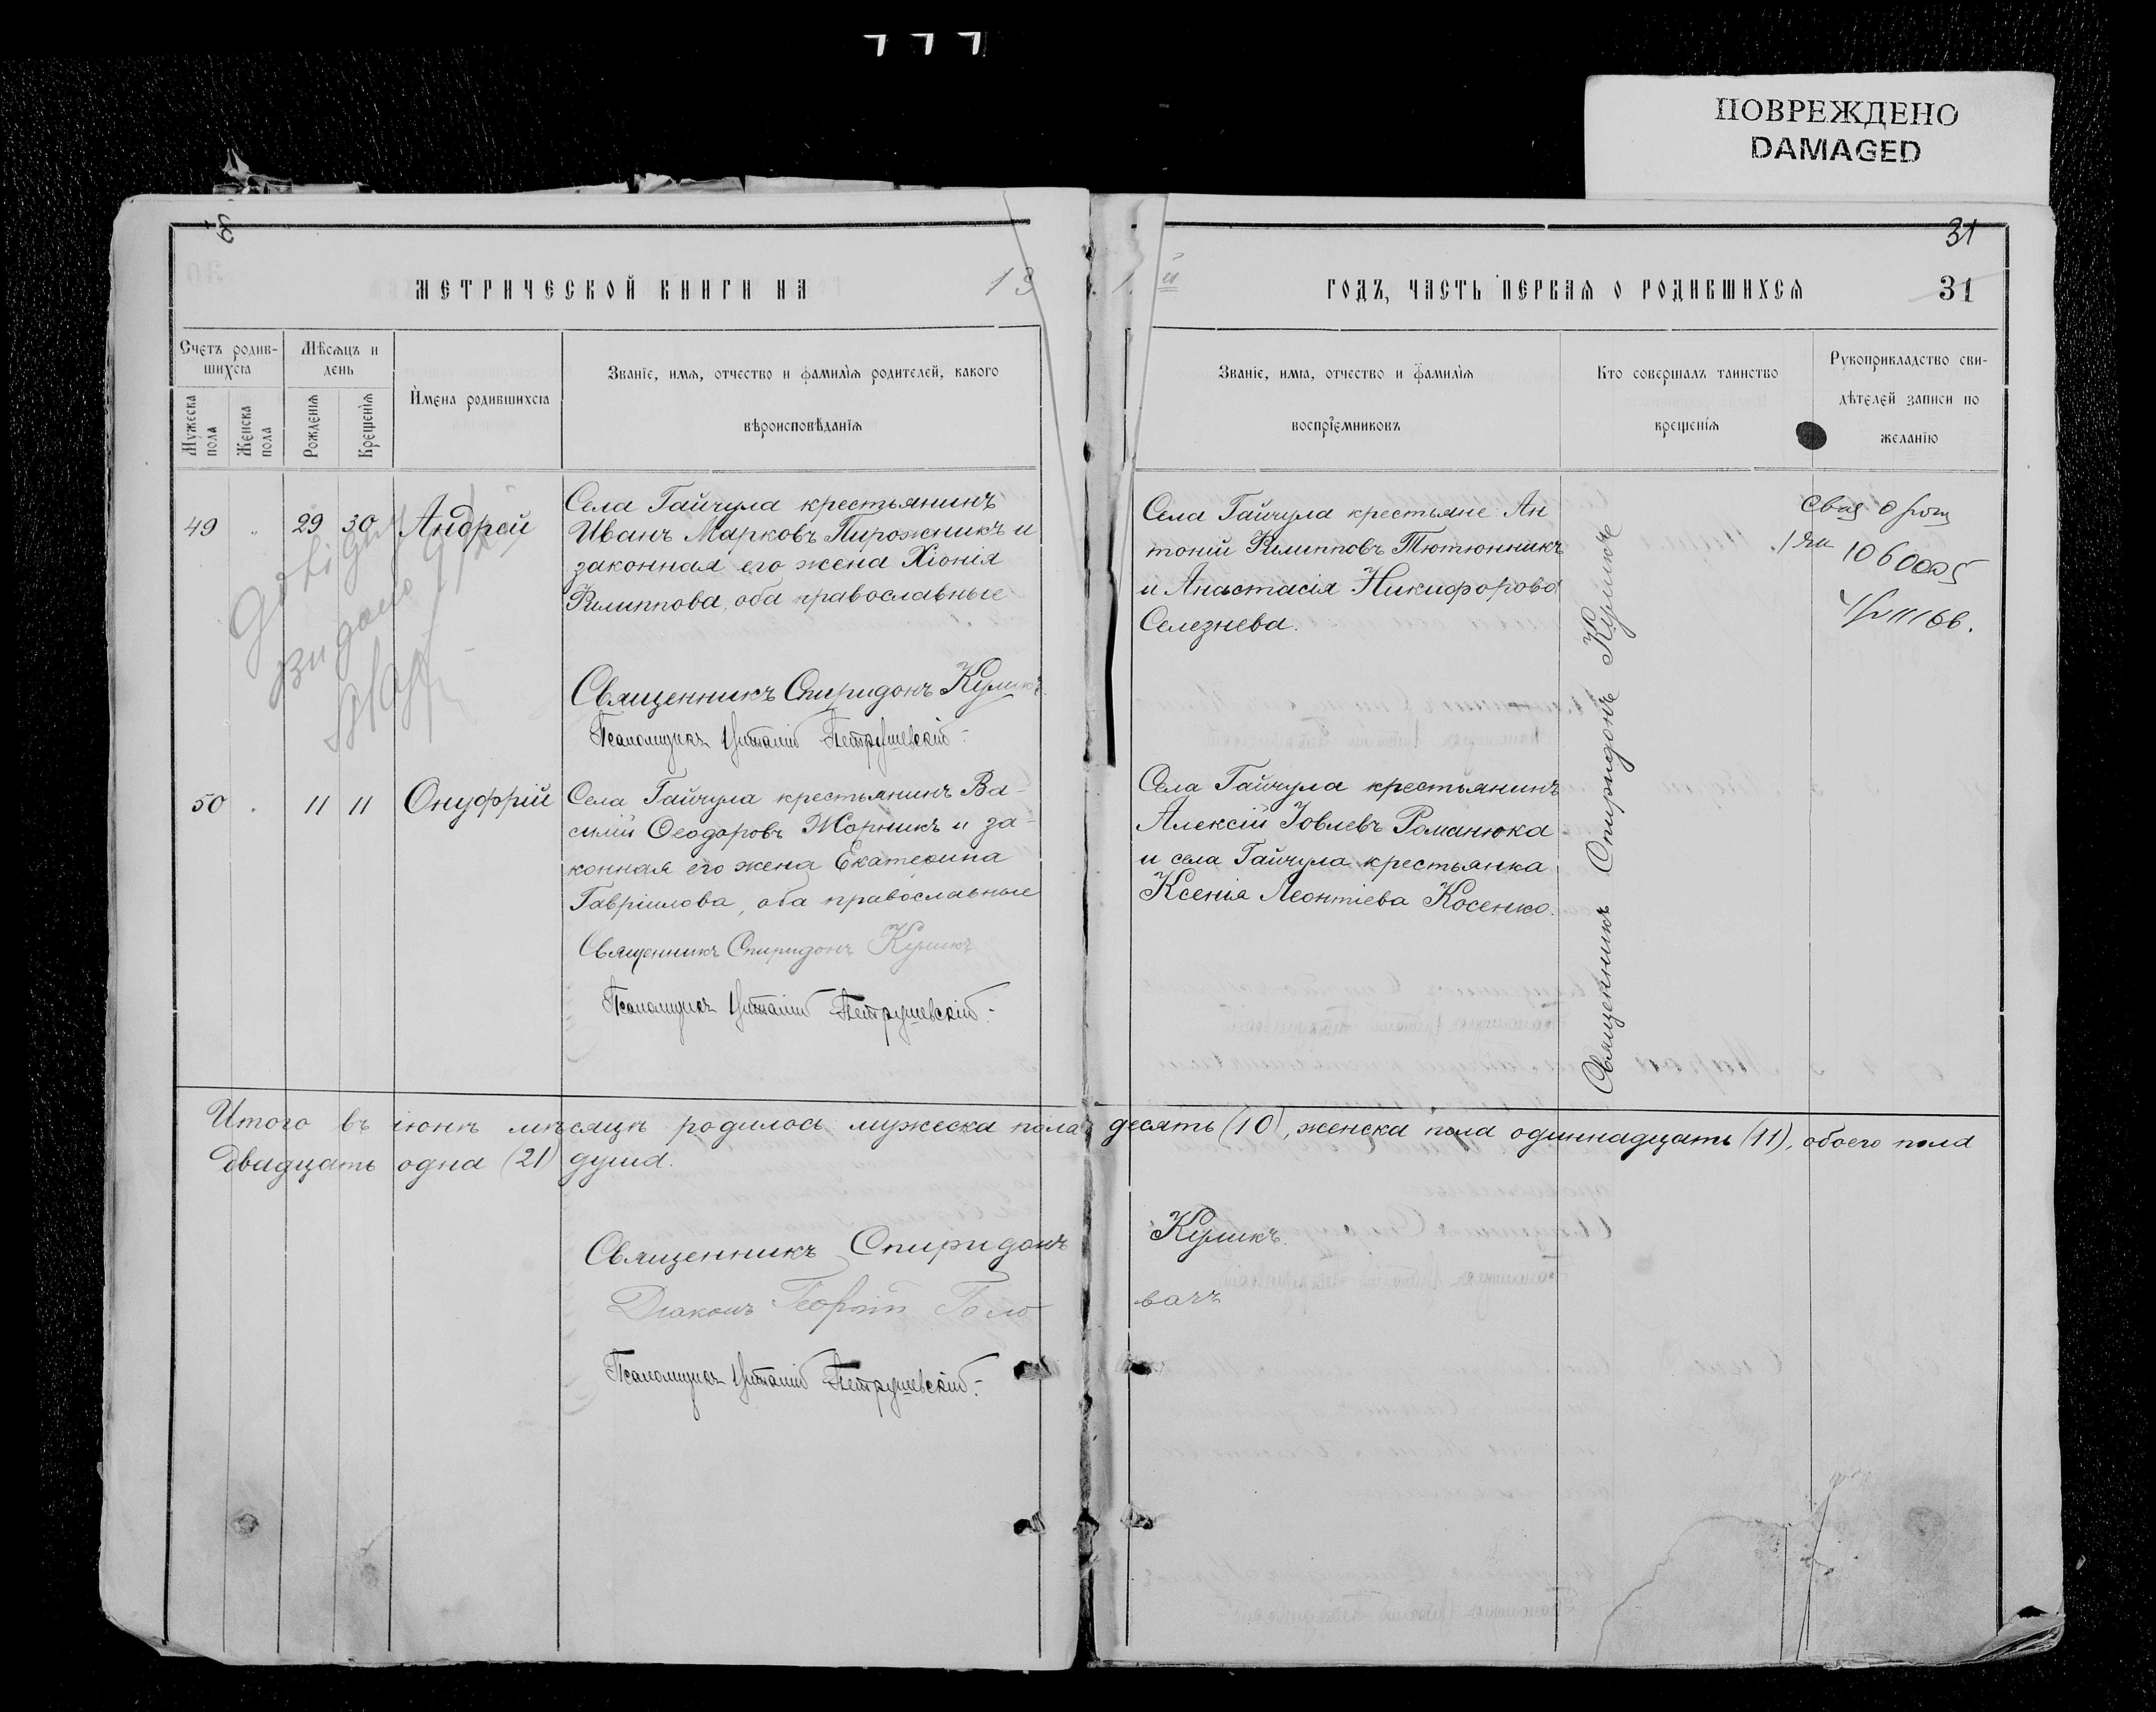 ПОВРЕЖДЕНО
DAMAGED
31
МЕТРИЧЕСКОЙ КНИГИ НА 19
1 й ГОДЪ, ЧАСТЬ ПЕРВАЯ О РОДИВШИХСЯ 31
Счетъ родив-
шихся
Мужеска пола
Женска пола
Мѣсяцъ и
день
Рожденія
Крещенія
Имена родившихся
Званіе, имя, отчество и фамилія родителей, какого
вѣроисповѣданія
Званіе, имя, отчество и фамилія
воспріемниковъ
Кто совершалъ таинство
крещенія
Рукоприкладство сви-
дѣтелей записи по
желанію
49 29 30 Андрей
Села Гайчула крестьянинъ
Иванъ Марковъ Пирожникъ и
законная его жена Хіонія
Филиппова, оба православные
Священникъ Спиридонъ Куликъ
Псаломщикъ Петрушевскій
Села Гайчула крестьяне Ан
тоній Филипповъ Тютюнникъ
и Анастасія Никифорова
Селезнева.
Священникъ Спиридонъ Куликъ
50 11 11 Онуфрій
Села Гайчула крестьянинъ Ва-
силій Ѳеодоровъ Жорникъ и за-
конная его жена Екатерина
Гавріилова, оба православные
Священникъ Спиридонъ Куликъ
Псаломщикъ Петрушевскій
Села Гайчула крестьянинъ
Алексій Іовлевъ Романюка
и села Гайчула крестьянка
Ксенія Леонтіева Косенко.
Итого въ іюнѣ мѣсяцѣ родилось мужеска пола десять (10), женска пола одиннадцать (11), обоего пола
двадцать одна (21) душа.
Священникъ Спиридонъ Куликъ.
Діаконъ Георгій Голо вачъ
Псаломщикъ Петрушевскій